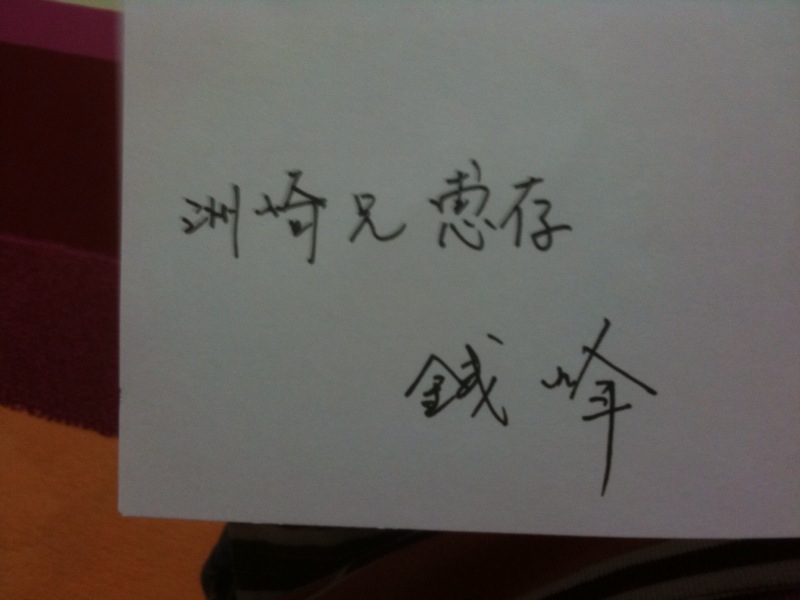 洲崎兄惠存
鋮峰